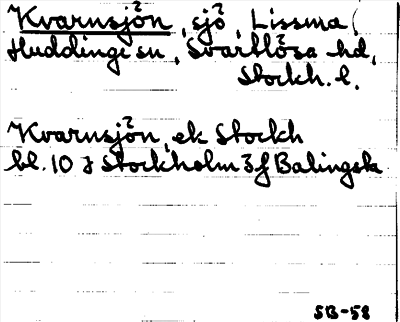 Kvarnsjön, sjö, Lissma,
Huddinge sn, Svartlösa hd,
Stockh. l.
Kvarnsjön, ek Stockh
bl. 10 J Stockholm 3f Balingsta
SB-58